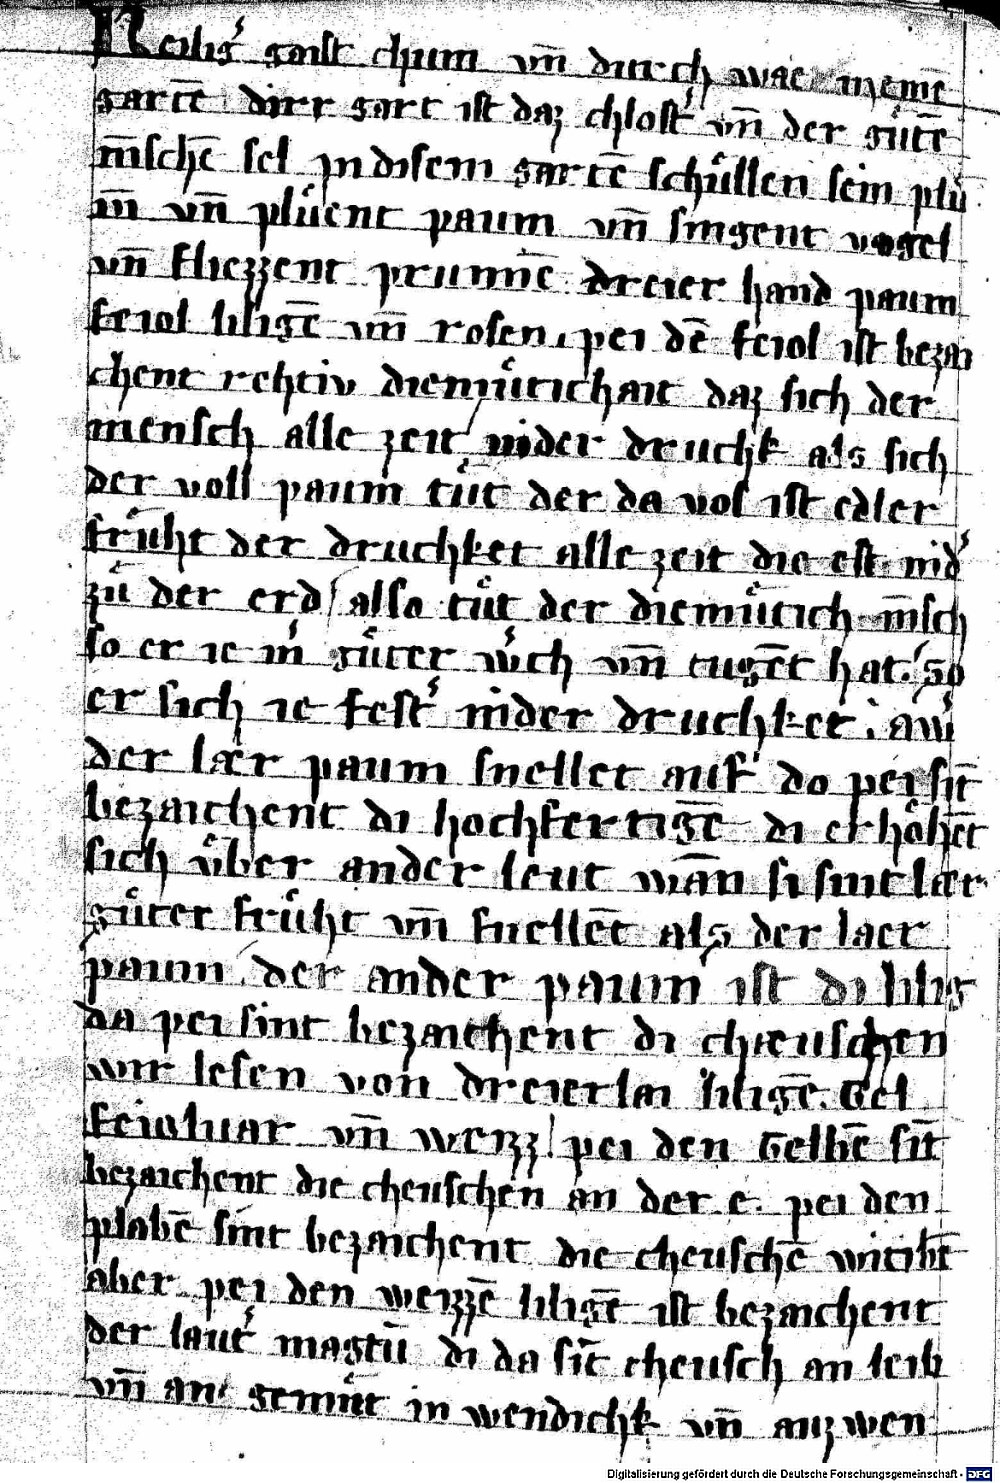 Heiligʼ gaist chum vn̄ durch wae meinē
gartē dirr gart ist daz chlostʼ vn̄ der gůtē
m̄schē sel jn disem gartē schůllen sein plů
m̄ vn̄ plůent paum vn̄ singent vogel
vn̄ fliezzent prunnē dreier hand paum
feiol liligē vn̄ rosen, pei dē feiol ist bezai
chent rehtiv diemůtichait daz sich der
mensch alle zeit nider druchk als sich
der voll paum tůt der da vol ist edler
frůht der druchket alle zeit die est nidʼ
zů der erd / also tůt der diemůtich m̄sch
so er ie mʼ gůter wʼch vn̄ tugēt hat / so
er sich ie festʼ nider druchket. awʼ
der lær paum snellet auf do pei sīt
bezaichent di hochfertigē di erhöhēt
sich über ander leut wān si sint lær
gůter frůht vn̄ snellēt als der laer
paum / der ander paum ist di lilig
da pei sint bezaichent di chæuschen
wir lesen von dreierlai liligē. Gel
feioluar vn̄ weizz / pei den gelbē sīt
bezaichent die cheuschen an der e. pei den
plabē sint bezaichent die cheuschē witibē
aber pei den weizzē liligē ist bezaichent
der lautʼ magtū di da sīt cheusch an leib
vn̄ an gemůt in wendichk vn̄ auzwen
Digitalisierung gefördert durch die Deutsche Forschungsgemeinschaft - DFG